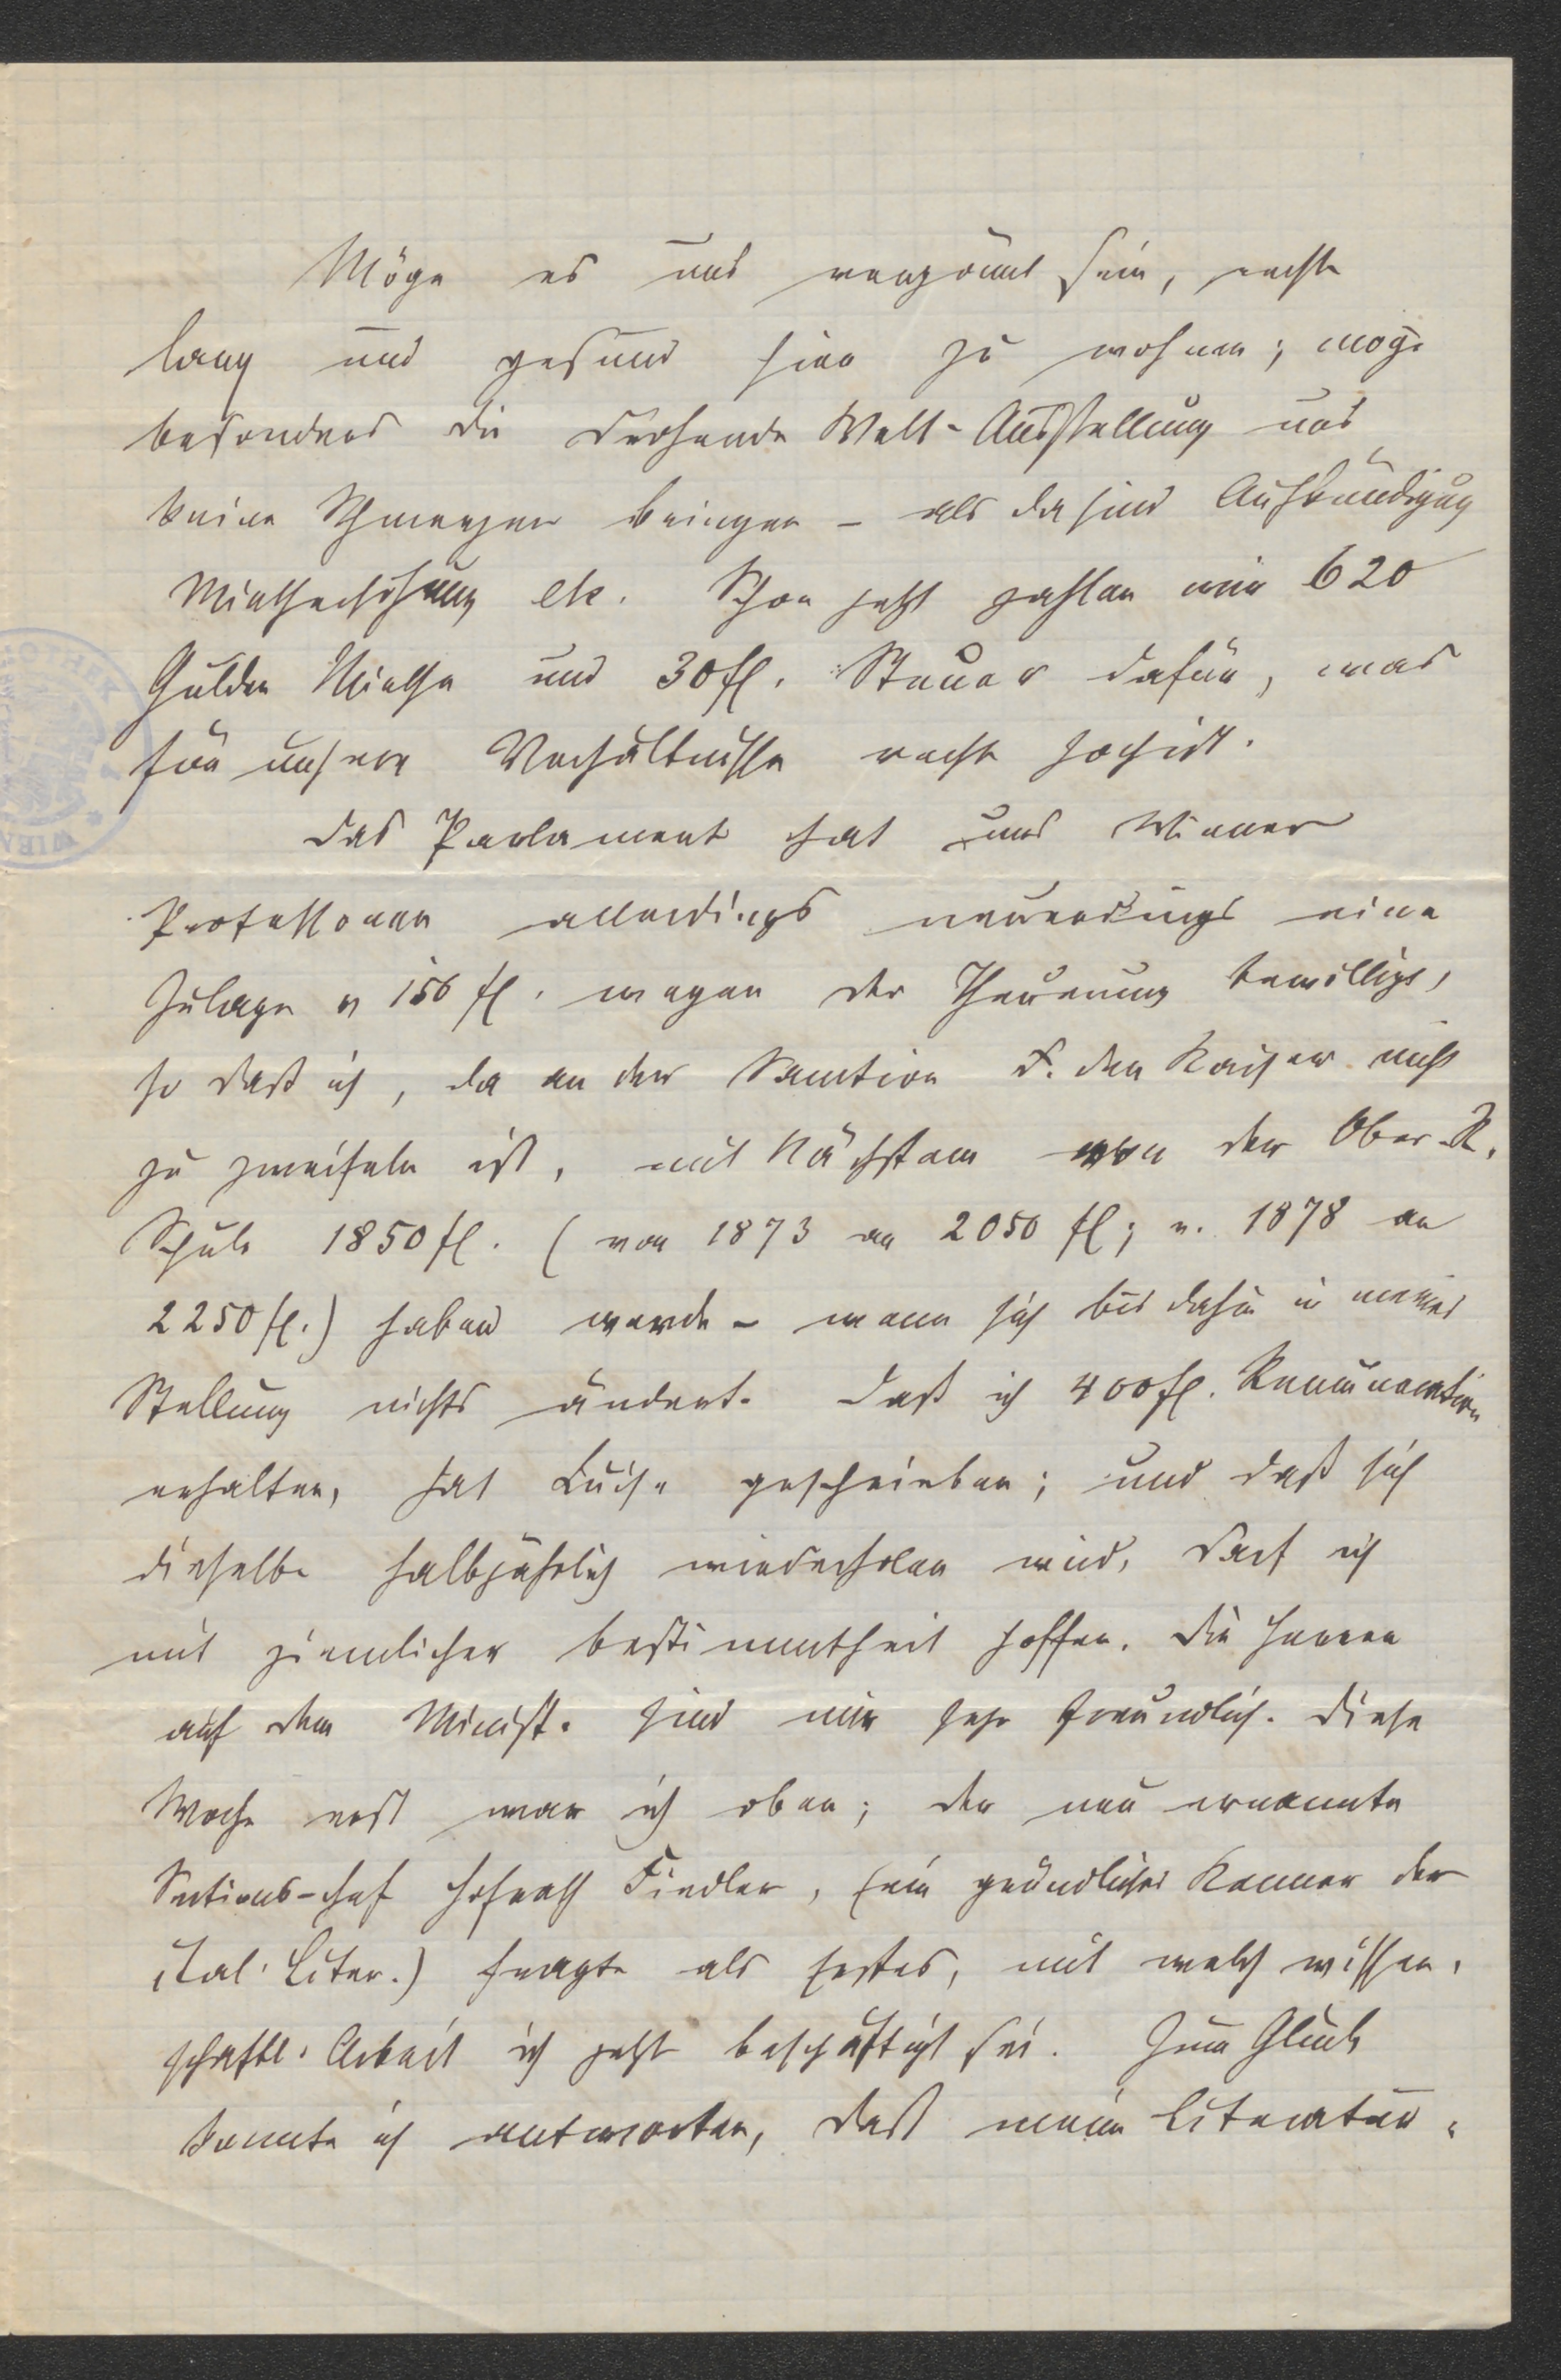 Möge es uns vergönnt sein, recht
lang und gesund hier zu wohnen; möge
besonders die drohende Welt-Ausstellung uns
keine Schmerzen bringen – als da sind Aufkündigung
Mietherhöhung etc. Schon jetzt zahlen wir 620
Gulden Miethe und 30 fl. Steuer dafür, was
für unsere Verhältnisse recht hoch ist.
Das Parlament hat uns Wiener
Professoren allerdings neuerdings eine
Zulage v 150 fl. wegen der Theuerung bewilligt,
so daß ich, da an der Sanction d. den Kaiser nicht
zu zweifeln ist, mit Nächstem von der Ober-R.
Schule 1850 fl. (von 1873 an 2050 fl; v. 1878 an
2250 fl.) haben werde – wenn sich bis dahin in meiner
Stellung nichts ändert. Daß ich 400 fl. Remuneration
erhalten, hat Luise geschrieben; und daß sich
dieselbe halbjährlich wiederholen wird, darf ich
mit ziemlicher bestimmtheit hoffen. Die Herren
auf dem Minist. sind mir sehr freundlich. Diese
Woche erst war ich oben; der neu ernannte
Sections-chef Hofrath Fiedler, (ein gründlicher Kenner der
ital. Liter.) fragte als erstes, mit welch wissen-
schaftl. Arbeit ich jetzt beschäftigt sei. Zum Glück
konnte ich antworten, daß meine Literatur-
WIEN